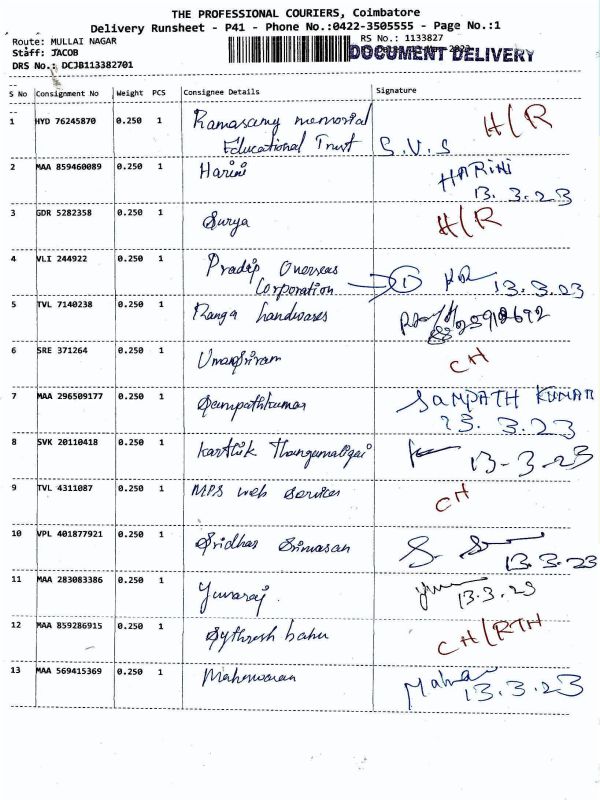 THE PROFESSIONAL COURIERS, Coimbatore
Delivery Runsheet - P41 - Phone No.:0422-3505555 - Page No.:1
Route: MULLAI NAGAR RS No.: 1133827
Staff: JACOB DOCUMENT DELIVERY
DRS No.: DCJB113382701
S No Consignment No Weight PCS Consignee Details Signature
1 HYD 76245870 0.250 1 Ramasamy memorial H/R
Educational Trust S.V.S
2 MAA 859460089 0.250 1 Harini HARINI
13.3.23
3 GDR 5282358 0.250 1 Surya H/R
4 VLI 244922 0.250 1 Pradip Overseas
Corporation 1 13.3.23
5 TVL 7140238 0.250 1 Ranga hardwares
6 SRE 371264 0.250 1 CH
7 MAA 296509177 0.250 1 Sampathkumar SAMPATH KUMAR
13.3.23
8 SVK 20110418 0.250 1 Karthik Thangamaligai 13-3-23
9 TVL 4311087 0.250 1 MPS web services CH
10 VPL 401877921 0.250 1 Sridhar Srinivasan 13.3.23
11 MAA 283083386 0.250 1 Yuvaraj. 13.3.23
12 MAA 859286915 0.250 1 babu CH/RTH
13 MAA 569415369 0.250 1 Maheswaran 13.3.23